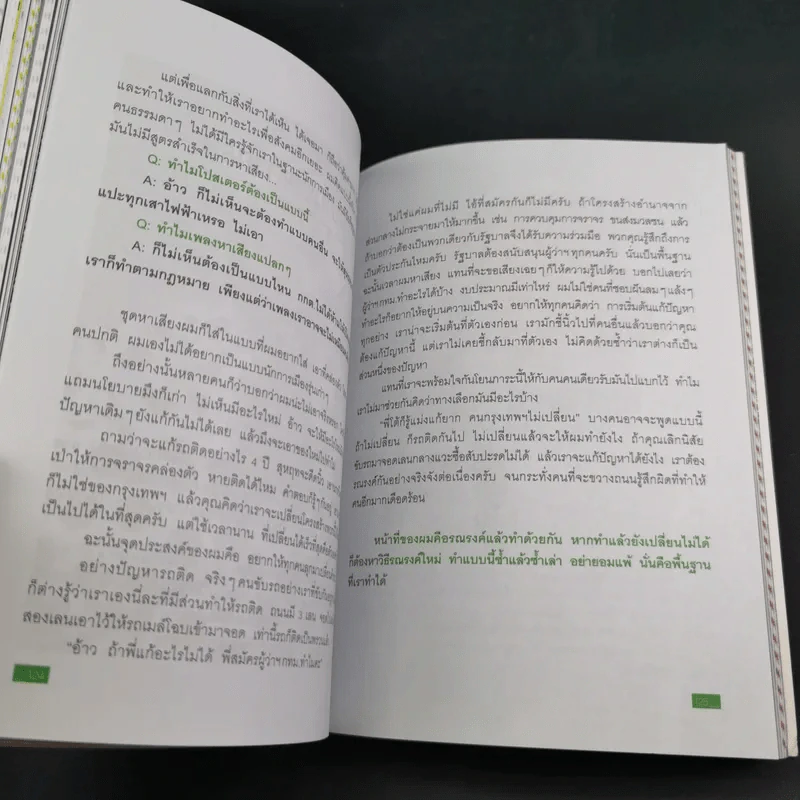 แต่เพื่อแลกกับสิ่งที่เราได้เห็น ได้เจอมา
และทำให้เราอยากทำอะไรเพื่อสังคมอีกเยอะ
คนธรรมดาๆ ไม่ได้มีใครรู้จักเราในฐานะนักการเมือง
มันไม่มีสูตรสำเร็จในการหาเสียง...
Q: ทำไมโปสเตอร์ต้องเป็นแบบนี้
A: อ้าว ก็ไม่เห็นจะต้องทำแบบคนอื่น
แปะทุกเสาไฟฟ้าเหรอ ไม่เอา
Q: ทำไมเพลงหาเสียงแปลกๆ
A: ก็ไม่เห็นต้องเป็นแบบไหน กกต.ไม่ได้ห้าม
เราก็ทำตามกฎหมาย เพียงแต่ว่าเพลงเราอาจจะไม่เหมือน
ชุดหาเสียงผมก็ใส่ในแบบที่ผมอยากใส่
คนปกติ ผมเองไม่ได้อยากเป็นแบบนักการเมืองรุ่นเก่าๆ
ถึงอย่างนั้นหลายคนก็ว่าบอกว่าผมน่ะไม่เอาจริง
แถมนโยบายมึงก็เก่า ไม่เห็นมีอะไรใหม่ อ้าว จะให้มีอะไร
ปัญหาเดิมๆ ยังแก้กันไม่ได้เลย แล้วมึงจะเอาของใหม่ไปทำไม
ถามว่าจะแก้รถติดอย่างไร 4 ปี
เป่าให้การจราจรคล่องตัว หายติดได้ไหม คำตอบก็รู้ๆ กันอยู่
ก็ไม่ใช่ของกรุงเทพฯ แล้วคุณคิดว่าเราจะเปลี่ยนโครงสร้าง
เป็นไปได้ในที่สุดครับ แต่ใช้เวลานาน ที่เปลี่ยนได้เร็วที่สุดคือ
ฉะนั้นจุดประสงค์ของผมคือ อยากให้ทุกคนลุกมาเปลี่ยน
อย่างปัญหารถติด จริงๆ คนขับรถอย่างเราที่ขับกัน
ก็ต่างรู้ว่าเราเองนี่ละที่มีส่วนทำให้รถติด ถนนมี 3 เลน
สองเลนเอาไว้ให้รถเมล์โฉบเข้ามาจอด เท่านี้รถก็ติดเป็นพรวน
"อ้าว ถ้าพี่แก้อะไรไม่ได้ พี่สมัครผู้ว่าฯกทม.ทำไมคะ"
124
ไม่ใช่แค่ผมที่ไม่มี ไอ้ที่สมัครกันก็ไม่มีครับ ถ้าโครงสร้างอำนาจจาก
ส่วนกลางไม่กระจายมาให้มากขึ้น เช่น การควบคุมการจราจร ขนส่งมวลชน แล้ว
ถ้าบอกว่าต้องเป็นพวกเดียวกับรัฐบาลจึงได้รับความร่วมมือ พวกคุณรู้สึกถึงการ
เป็นตัวประกันไหมครับ รัฐบาลต้องสนับสนุนผู้ว่าฯทุกคนครับ นั่นเป็นพื้นฐาน
ฉะนั้นเวลาผมหาเสียง แทนที่จะขอเสียงเฉยๆ ก็ให้ความรู้ไปด้วย บอกไปเลยว่า
ผู้ว่าฯกทม.ทำอะไรได้บ้าง งบประมาณมีเท่าไหร่ ผมไม่ใช่คนที่ชอบฝันลมๆ แล้งๆ
ทำอะไรก็อยากให้อยู่บนความเป็นจริง อยากให้ทุกคนคิดว่า การเริ่มต้นแก้ปัญหา
ทุกอย่าง เราน่าจะเริ่มต้นที่ตัวเองก่อน เรามักชี้นิ้วไปที่คนอื่นแล้วบอกว่าคุณ
ต้องแก้ปัญหานี้ แต่เราไม่เคยชี้กลับมาที่ตัวเอง ไม่คิดด้วยซ้ำว่าเราต่างก็เป็น
ส่วนหนึ่งของปัญหา
แทนที่เราจะพร้อมใจกันโยนภาระนี้ให้กับคนคนเดียวรับมันไปแบกไว้ ทำไม
เราไม่มาช่วยกันคิดว่าทางเลือกมันมีอะไรบ้าง
"พี่โต้ก็รู้แม่งแก้ยาก คนกรุงเทพฯไม่เปลี่ยน" บางคนอาจจะพูดแบบนี้
ถ้าไม่เปลี่ยน ก็รถติดกันไป ไม่เปลี่ยนแล้วจะให้ผมทำยังไง ถ้าคุณเลิกนิสัย
ขับรถมาจอดเลนกลางแวะซื้อสับปะรดไม่ได้ แล้วเราจะแก้ปัญหาได้ยังไง เราต้อง
รณรงค์กันอย่างจริงจังต่อเนื่องครับ จนกระทั่งคนที่จะขวางถนนรู้สึกผิดที่ทำให้
คนอีกมากเดือดร้อน
หน้าที่ของผมคือรณรงค์แล้วทำด้วยกัน หากทำแล้วยังเปลี่ยนไม่ได้
ก็ต้องหาวิธีรณรงค์ใหม่ ทำแบบนี้ซ้ำแล้วซ้ำเล่า อย่ายอมแพ้ นั่นคือพื้นฐาน
ที่เราทำได้
125